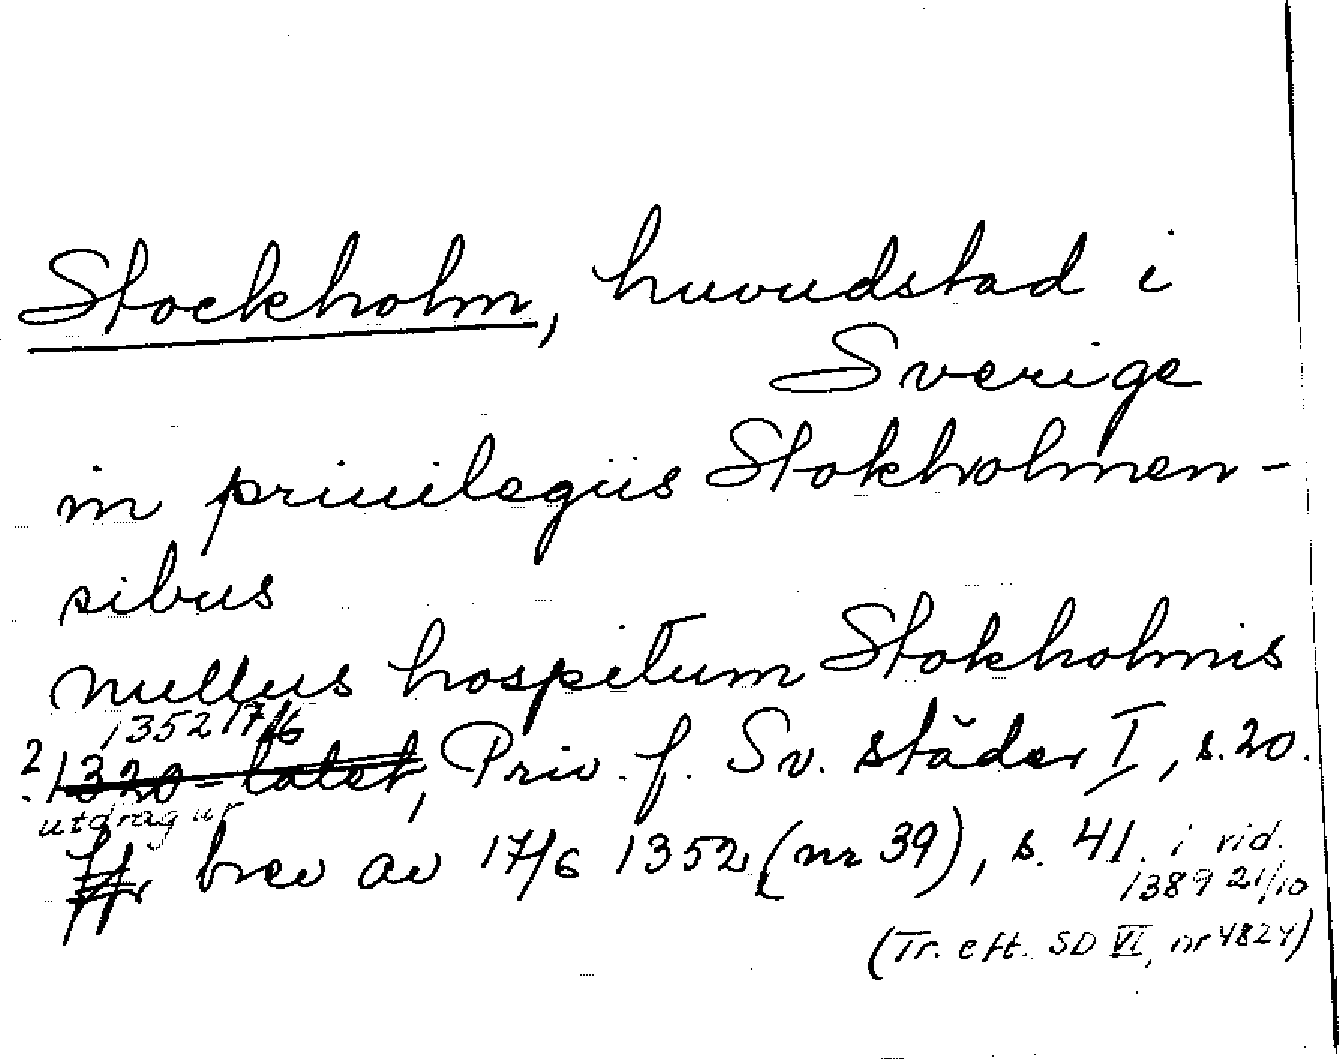 Stockholm, huvudstad i
Sverige
in priuilegiis Stokholmen-
sibus
nullus hospitum Stokholmis
1352 17/6
? 1320-talet, Priv. f. Sv. städer I, s. 20.
utdrag ur
brev av 17/6 1352 (nr 39), s. 41. i vid.
1389 21/10
(Tr. eft. SD VI, nr 4824)